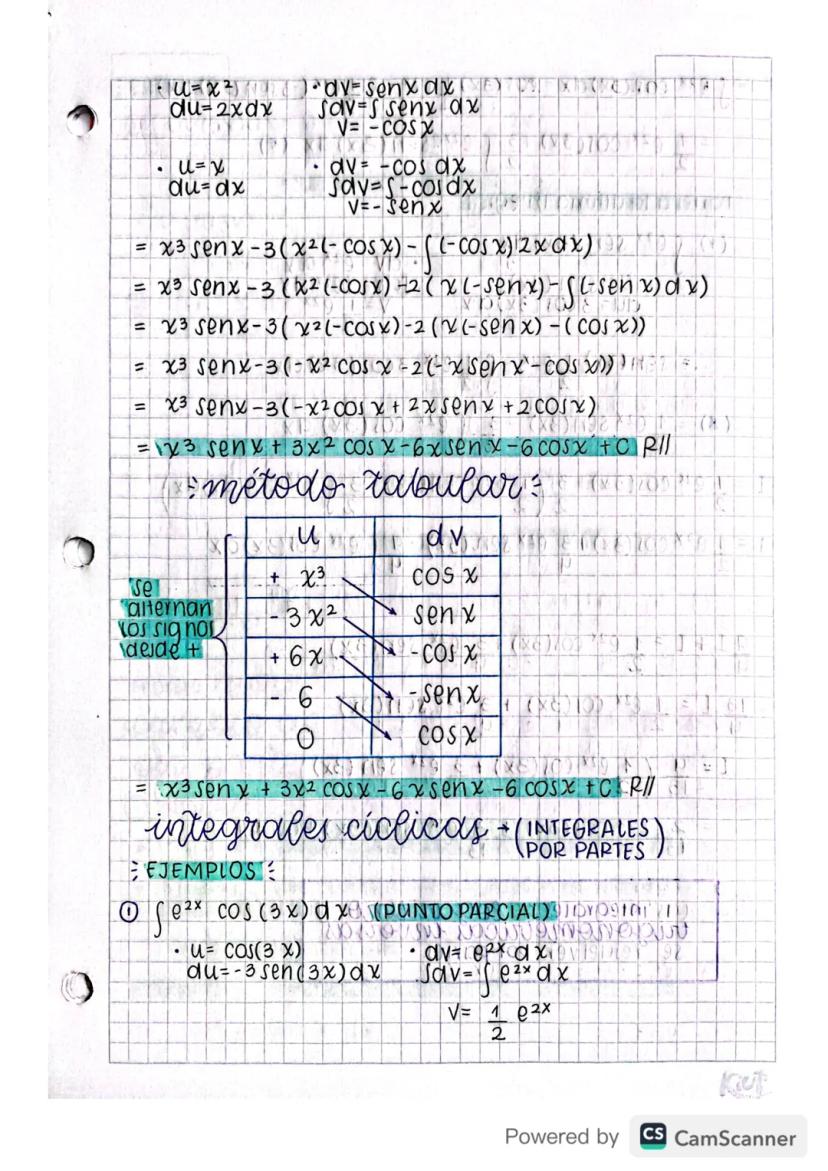 · u=x²   · dv=senx dx
du=2xdx   ∫dv=∫senx dx
v= -cosx
· u=x   · dv= -cos dx
du=dx   ∫dv=∫-cosdx
v=-senx
= x³ senx -3(x²(-cosx)-∫(-cosx)2xdx)
= x³ senx -3(x²(-cosx)-2(x(-senx)-∫(-senx)dx)
= x³ senx-3(x²(-cosx)-2(x(-senx)-(cosx))
= x³ senx-3(-x² cosx -2(-xsenx-cosx))
= x³ senx-3(-x²cosx+2xsenx+2cosx)
= x³ senx + 3x² cosx-6xsenx-6cosx+C R//
método tabular:
u   dv
+ x³   cos x
- 3x²   sen x
+ 6x   -cos x
- 6   -senx
0   cosx
se
alternan
los signos
desde +
= x³senx + 3x² cosx-6xsenx-6cosx+C R//
integrales cíclicas → (INTEGRALES
POR PARTES)
EJEMPLOS
① ∫e²ˣ cos(3x)dx (PUNTO PARCIAL)
· u= cos(3x)   · dv= e²ˣ dx
du=-3sen(3x)dx   ∫dv=∫e²ˣdx
v= 1/2 e²ˣ
Powered by CS CamScanner